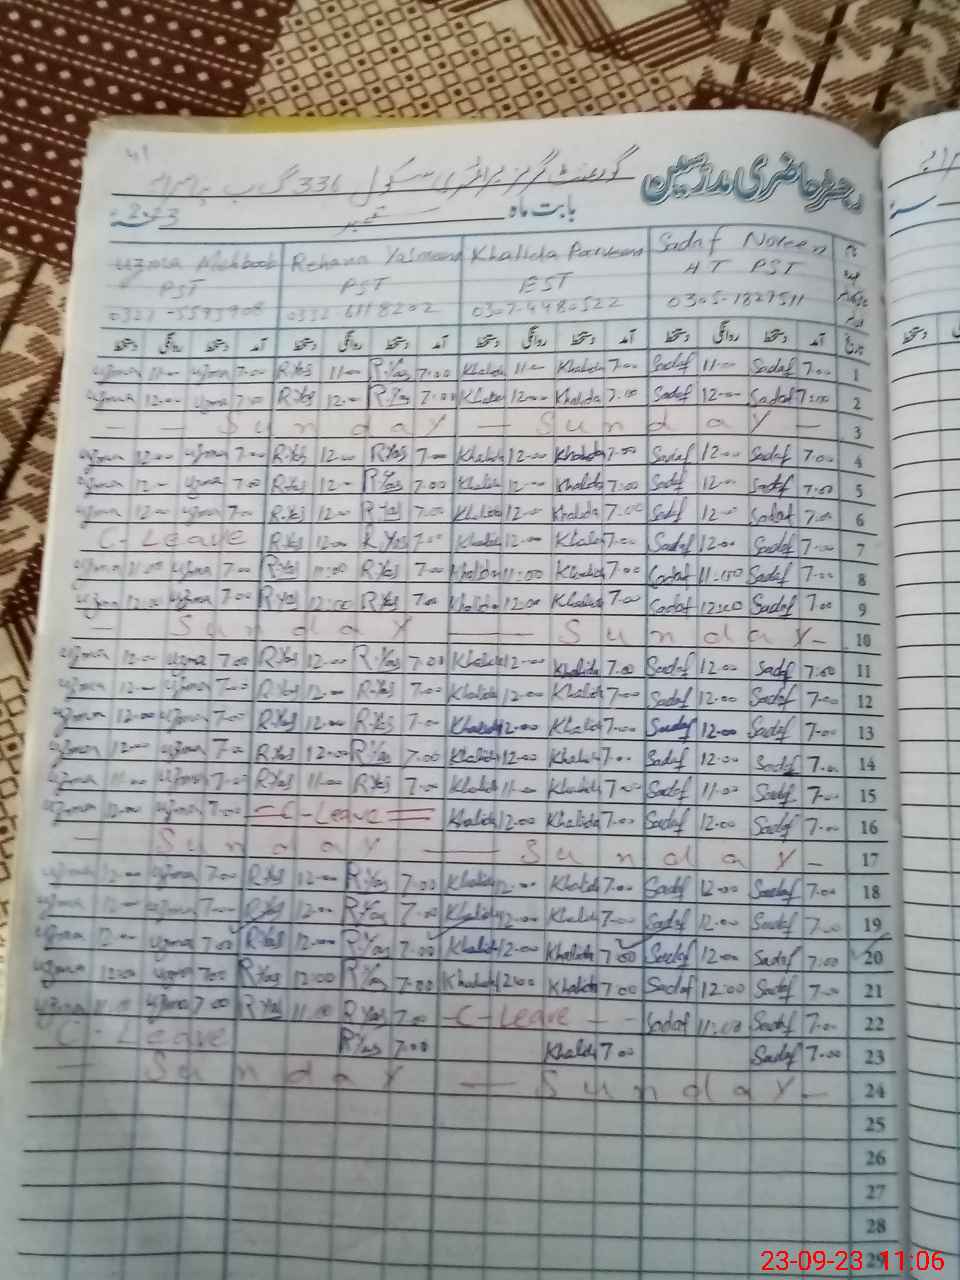 رجسٹر حاضری مدرسین گورنمنٹ گرلز پرائمری سکول 336 گ ب
بابت ماہ ستمبر 2023
Uzma Mehboob Rehana Yasmeen Khalida Parveen Sadaf Noreen نام
PST PST EST HT PST عہدہ
0332-6118202 0307-4480522 0305-1827511
دستخط روانگی دستخط آمد دستخط روانگی دستخط آمد دستخط روانگی دستخط آمد دستخط روانگی دستخط آمد تاریخ
Uzma 11-00 Uzma 7-00 R.Yas 11-00 R.Yas 7:00 Khalida 11-00 Khalida 7-00 Sadaf 11-00 Sadaf 7-00 1
Uzma 12-00 Uzma 7-00 R.Yas 12-00 R.Yas 7:00 Khalida 12-00 Khalida 7-00 Sadaf 12-00 Sadaf 7:00 2
- - Sunday - Sunday - 3
Uzma 12-00 Uzma 7-00 R.Yas 12-00 R.Yas 7-00 Khalida 12-00 Khalida 7-00 Sadaf 12-00 Sadaf 7-00 4
Uzma 12-00 Uzma 7-00 R.Yas 12-00 R.Yas 7-00 Khalida 12-00 Khalida 7:00 Sadaf 12-00 Sadaf 7-00 5
Uzma 12-00 Uzma 7-00 R.Yas 12-00 R.Yas 7-00 Khalida 12-00 Khalida 7-00 Sadaf 12-00 Sadaf 7-00 6
C-Leave R.Yas 12-00 R.Yas 7-00 Khalida 12-00 Khalida 7-00 Sadaf 12-00 Sadaf 7-00 7
Uzma 11-00 Uzma 7-00 R.Yas 11:00 R.Yas 7-00 Khalida 11-00 Khalida 7-00 Sadaf 11-00 Sadaf 7-00 8
Uzma 12-00 Uzma 7-00 R.Yas 12:00 R.Yas 7-00 Khalida 12-00 Khalida 7-00 Sadaf 12:00 Sadaf 7-00 9
- Sunday - Sunday - 10
Uzma 12-00 Uzma 7-00 R.Yas 12-00 R.Yas 7-00 Khalida 12-00 Khalida 7-00 Sadaf 12-00 Sadaf 7-00 11
Uzma 12-00 Uzma 7-00 R.Yas 12-00 R.Yas 7-00 Khalida 12-00 Khalida 7-00 Sadaf 12-00 Sadaf 7-00 12
Uzma 12-00 Uzma 7-00 R.Yas 12-00 R.Yas 7-00 Khalida 12-00 Khalida 7-00 Sadaf 12-00 Sadaf 7-00 13
Uzma 12-00 Uzma 7-00 R.Yas 12-00 R.Yas 7-00 Khalida 12-00 Khalida 7-00 Sadaf 12-00 Sadaf 7-00 14
Uzma 11-00 Uzma 7-00 R.Yas 11-00 R.Yas 7-00 Khalida 11-00 Khalida 7-00 Sadaf 11-00 Sadaf 7-00 15
Uzma 12-00 Uzma 7-00 C-Leave Khalida 12-00 Khalida 7-00 Sadaf 12-00 Sadaf 7-00 16
- Sunday - Sunday - 17
Uzma 12-00 Uzma 7-00 R.Yas 12-00 R.Yas 7-00 Khalida 12-00 Khalida 7-00 Sadaf 12-00 Sadaf 7-00 18
Uzma 12-00 Uzma 7-00 R.Yas 12-00 R.Yas 7-00 Khalida 12-00 Khalida 7-00 Sadaf 12-00 Sadaf 7-00 19
Uzma 12-00 Uzma 7-00 R.Yas 12-00 R.Yas 7-00 Khalida 12-00 Khalida 7-00 Sadaf 12-00 Sadaf 7:00 20
Uzma 12-00 Uzma 7-00 R.Yas 12:00 R.Yas 7-00 Khalida 12:00 Khalida 7-00 Sadaf 12:00 Sadaf 7-00 21
Uzma 11-00 Uzma 7-00 R.Yas 11-00 R.Yas 7-00 C-Leave - - Sadaf 11-00 Sadaf 7-00 22
C-Leave R.Yas 7-00 Khalida 7-00 Sadaf 7-00 23
- Sunday - Sunday - 24
25
26
27
28
29
23-09-23 11:06